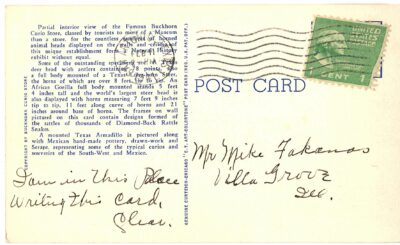 Partial interior view of the Famous Buckhorn
Curio Store, classed by tourists to more of a Museum
than a store. for the countless of horned
animal heads displayed on the walls and
this unique establishment form a Natural History
exhibit without equal.
One of the outstanding
deer head with antlers containing 78 points.
a full body mounted Texas Longhorn Steer,
the horns of which are over 8 feet, tip to tip. An
African Gorilla full body mounted stands 5 feet
4 inches tall and the world's largest steer head is
also displayed with horns measuring 7 feet 9 inches
tip to tip, 11 feet along curve of horns and 21
inches around base of horns. The frames on wall
pictured on this card contain designs formed of
the rattles of thousands of Diamond-Back Rattle
Snakes.
A mounted Texas Armadillo is pictured along
with Mexican hand-made pottery, drawn-work and
Serape, representing some of the typical curios and
souvenirs of the South-West and Mexico.
COPYRIGHT BY BUCKHORN CURIO STORE
GENUINE CURTEICH-CHICAGO "C.T. ART-COLORTONE" POST CARD (REG. U.S. PAT. OFF.)
POST CARD
UNITED
STATES
POSTAGE
1 CENT
I am in This Place
Writing This Card,
Mr Mike Fakanas
Villa Grove
Ill.